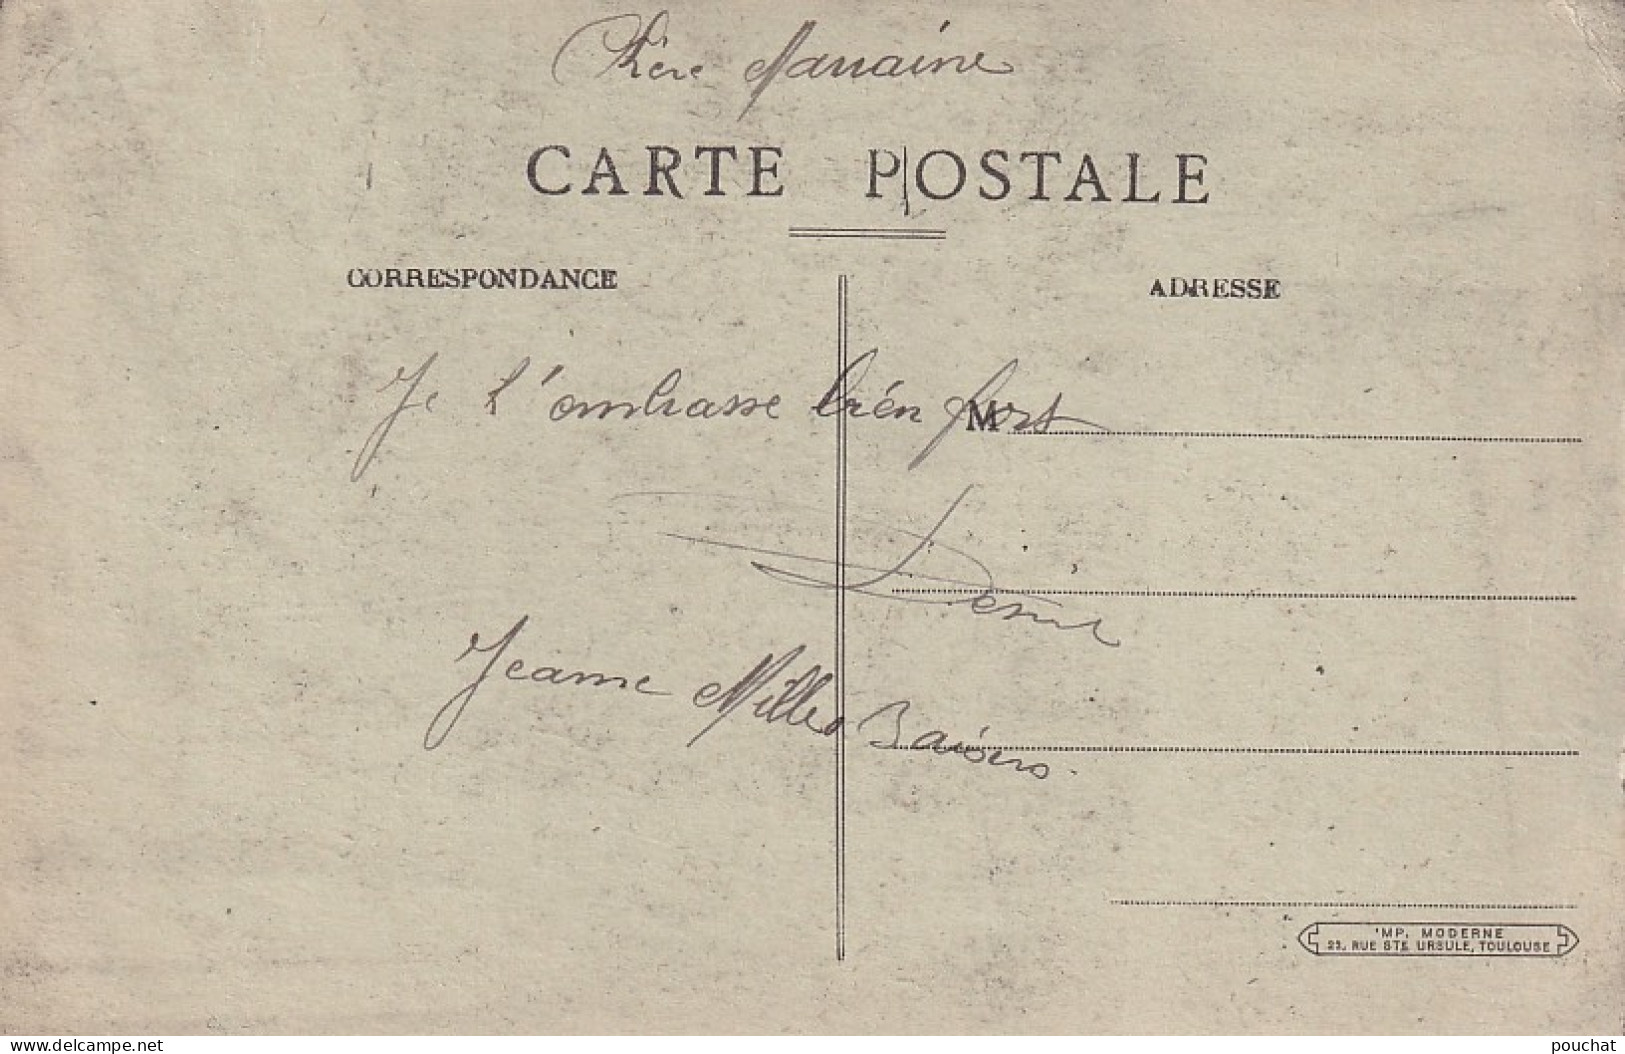 Chère Marraine
CARTE POSTALE
CORRESPONDANCE
ADRESSE
Je t'embrasse bien fort
M
Jeanne Milles Baisers
IMP. MODERNE
23, RUE STE URSULE, TOULOUSE
delcampe.net
pouchat